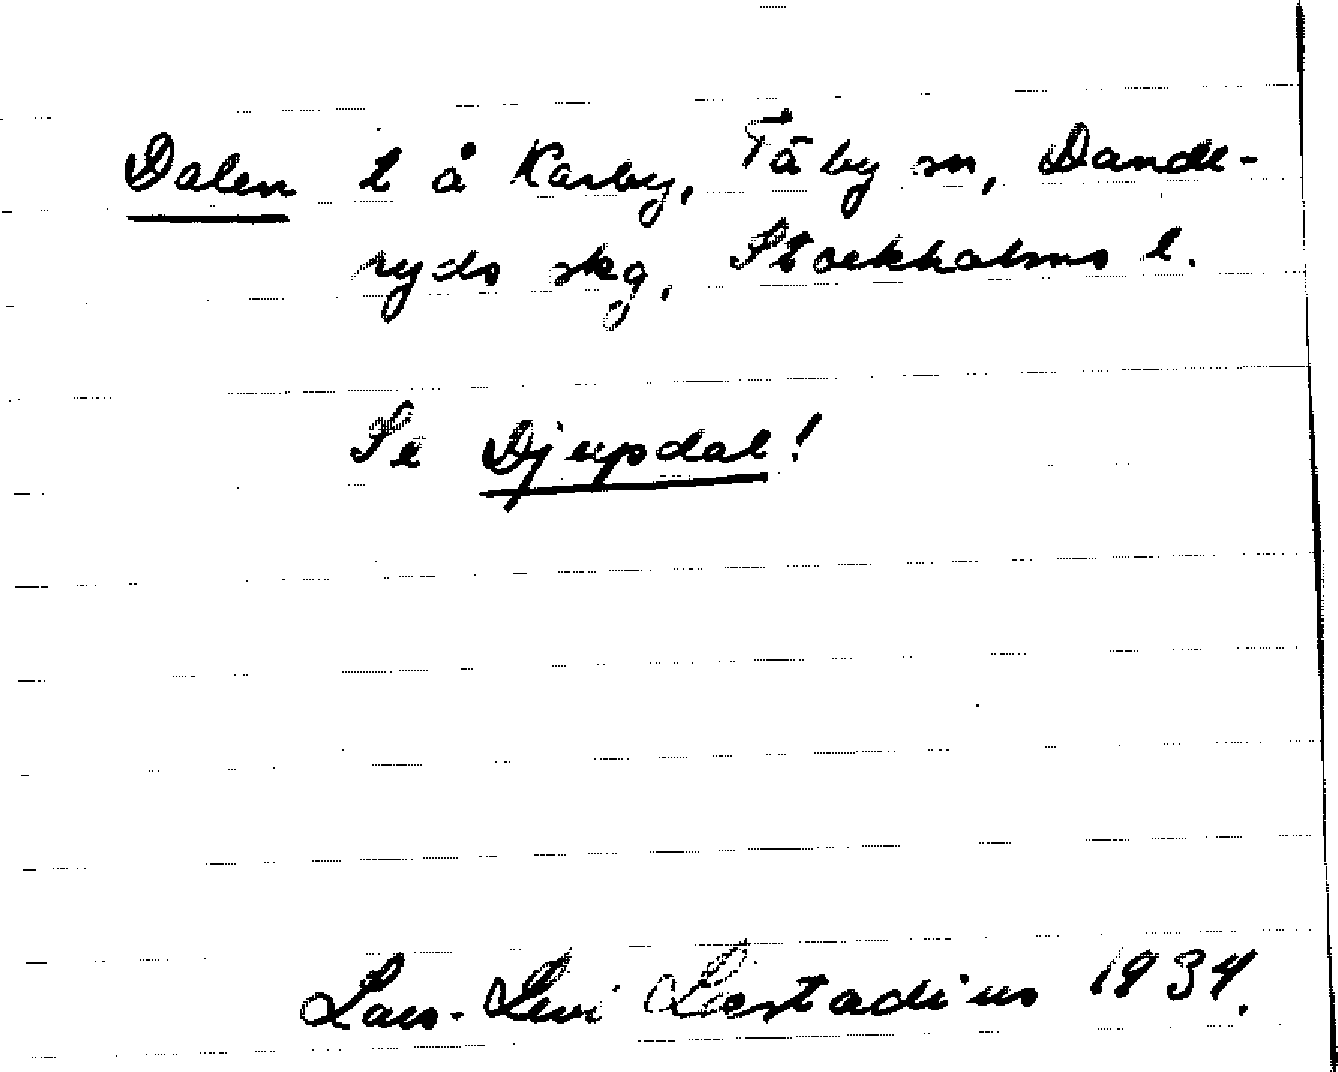 Dalen l å Karby, Täby sn, Dande-
ryds skg, Stockholms l.
Se Djupdal!
Lars-Levi Læstadius 1934.